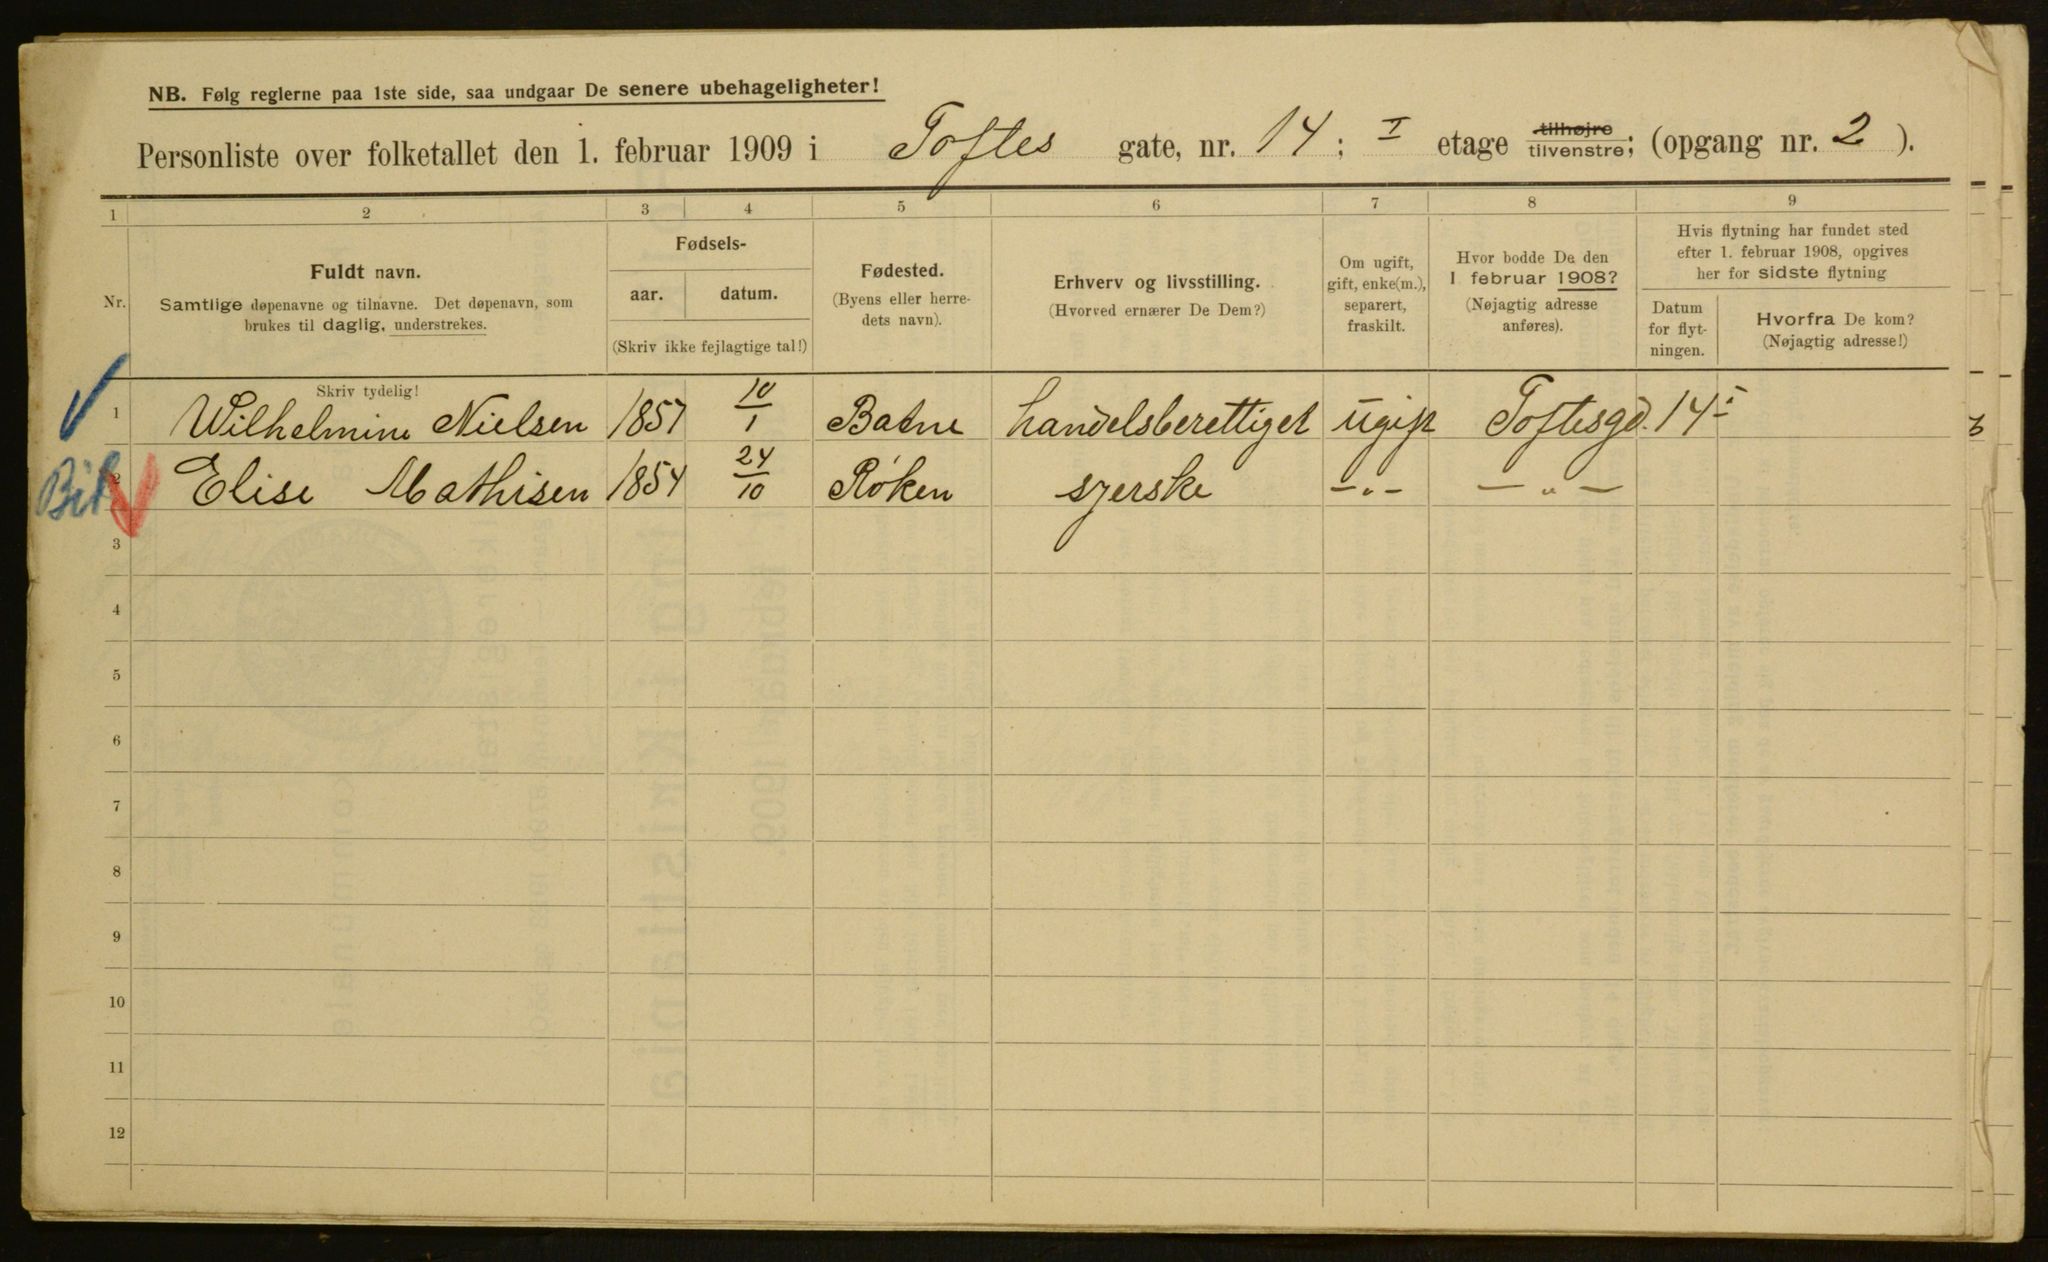 NB. Følg reglerne paa 1ste side, saa undgaar De senere ubehageligheter!
Personliste over folketallet den 1. februar 1909 i Toftes gate, nr. 14; I etage tilhøjre tilvenstre; (opgang nr. 2).
1 2 3 4 5 6 7 8 9
Nr.
Fuldt navn.
Samtlige døpenavne og tilnavne. Det døpenavn, som
brukes til daglig, understrekes.
Skriv tydelig!
Fødsels-
aar. datum.
(Skriv ikke fejlagtige tal!)
Fødested.
(Byens eller herre-
dets navn).
Erhverv og livsstilling.
(Hvorved ernærer De Dem?)
Om ugift,
gift, enke(m.),
separert,
fraskilt.
Hvor bodde De den
1 februar 1908?
(Nøjagtig adresse
anføres).
Hvis flytning har fundet sted
efter 1. februar 1908, opgives
her for sidste flytning
Datum
for flyt-
ningen.
Hvorfra De kom?
(Nøjagtig adresse!)
1 Wilhelmine Nielsen 1857 10/1 handelsberettiget ugift Toftesgd. 14 I
2 Elise Mathisen 1854 24/10 Røken syerske -„- -„-
3
4
5
6
7
8
9
10
11
12